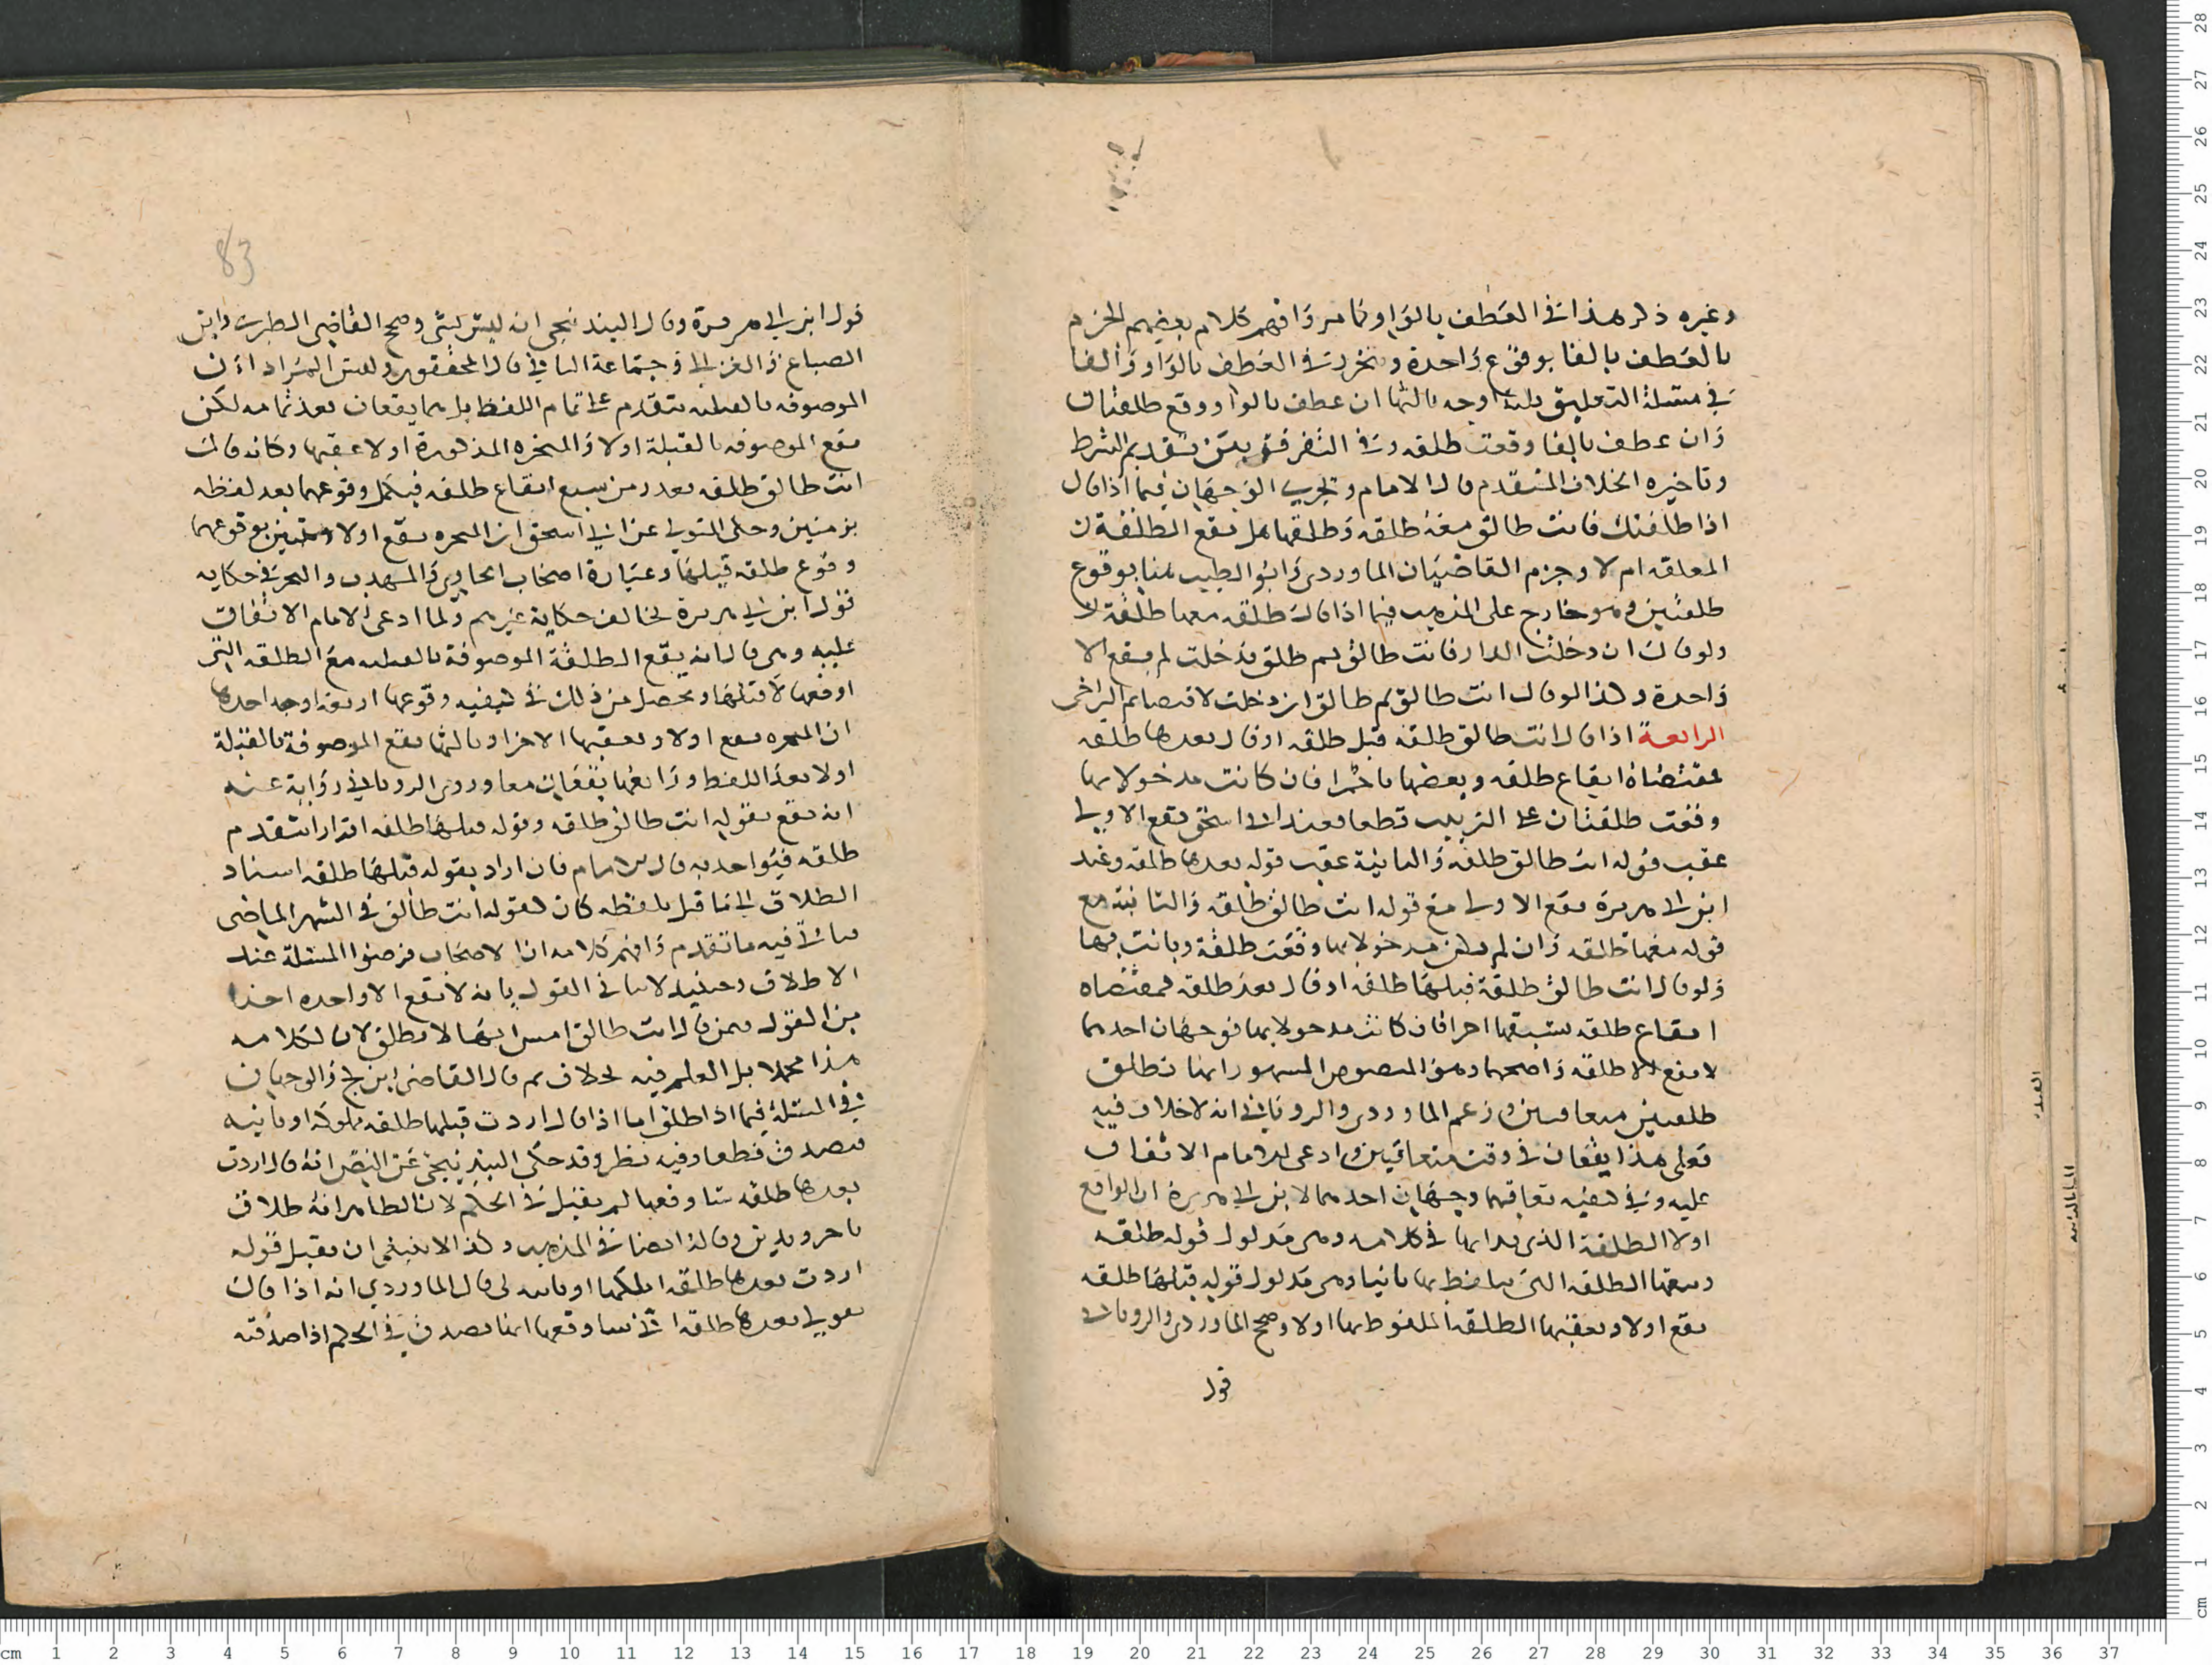 وغيره ذكر هذا في العطف بالواو وثم وافهم كلام بعضهم الجزم
بالعطف بالفا بوقوع واحدة وتحررت في العطف بالواو والفا
في مسئلة التعليق ثلثة اوجه ثالثها ان عطف بالواو وقع طلقتان
وان عطف بالفا وقعت طلقه وفي التفرقه بين تقديم الشرط
وتاخيره الخلاف المتقدم قال الامام ويجري الوجهان فيما اذا قال
اذا طلقتك فانت طالق معه طلقه وطلقها هل تقع الطلقة
المعلقه ام لا وجزم القاضيان الماوردي وابو الطيب هنا بوقوع
طلقتين وهو خارج على المذهب فيما اذا قال طلقه معها طلقة
ولو قال ان دخلت الدار فانت طالق ثم طلق فدخلت لم يقع الا
واحدة وكذا لو قال انت طالق ثم طالق ان دخلت لاقتضا ثم التراخي
الرابعة اذا قال انت طالق طلقه قبل طلقه او قال بعدها طلقه
مقتضاه ايقاع طلقه وبعضها باخرا فان كانت مدخولا بها
وقعت طلقتان على الترتيب قطعا فعند ابي اسحق تقع الاولى
عقب قوله انت طالق طلقه والثانية عقب قوله بعدها طلقه وعند
ابن ابي هريرة تقع الاولى مع قوله انت طالق طلقه والثانية مع
قوله معها طلقه وان لم تكن مدخولا بها وقعت طلقة وبانت بها
ولو قال انت طالق طلقة قبلها طلقه او قال بعد طلقه فمقتضاه
ايقاع طلقه تسبقها اخرا فان كانت مدخولا بها فوجهان احدهما
لا تقع الا طلقه واصحهما وهو المنصوص المشهور انها تطلق
طلقتين متعاقبتين وزعم الماوردي والروياني انه لا خلاف فيه
فعلى هذا يقعان في وقت متعاقبين وادعى الامام الاتفاق
عليه وفي كيفيه تعاقبهما وجهان احدهما لابن ابي هريرة ان الواقع
اولا الطلقة الذي بدا بها في كلامه وهي مدلول قوله طلقه
وتتبعها الطلقه التي تلفظ بها ثانيا وهي مدلول قوله قبلها طلقه
تقع اولا وتعقبها الطلقة الملفوظ بها اولا وصحح الماوردي والروياني
قول
83
قول ابن ابي هريرة وقال البندنيجي انه ليس بشي وصحح القاضي الطبري وابن
الصباغ والغزالي وجماعة الثاني قال المحققون وليس المراد ان
الموصوفه بالقبليه تتقدم على تمام اللفظ بل هما يقعان بعد تمامه لكن
تقع الموصوفه بالقبلة اولا والمنجزه المذكورة اولا عقبها وكانه قال
انت طالق طلقه بعد زمن يسع ايقاع طلقه فيكمل وقوعهما بعد لفظه
بزمنين وحكى المتولي عن ابي اسحق ان المنجزه تقع اولا بوقوعهما
وقوع طلقه قبلها وعبارة اصحاب الحاوي والمهذب والبحر في حكايه
قول ابن ابي هريرة تخالف حكاية غيرهم ولما ادعى الامام الاتفاق
عليه وهي قال انه يقع الطلقة الموصوفة بالقبليه مع الطلقه التي
اوقعها لا قبلها وتحصل من ذلك في كيفيه وقوعها اربعة اوجه احدها
ان المنجزه تقع اولا وتعقبها الاخرا وثالثها تقع الموصوفة بالقبلة
اولا بعد اللفظ ورابعها يقعان معا وروى الروياني رواية عنه
انه تقع بقوله انت طالق طلقه وقوله قبلها طلقه اقرارا بتقدم
طلقه فيؤاخذ به قال الامام فان اراد بقوله قبلها طلقه اسناد
الطلاق الى ما قبل بلفظه كان كقوله انت طالق في الشهر الماضي
فيه ما تقدم وافهم كلامه ان الاصحاب فرضوا المسئلة عند
الاطلاق وحينيذ لا ينافي القول بانه لا تقع الا واحده اخذا
من القول فيمن قال انت طالق امس انها لا تطلق لان لكلامه
هذا محملا بل العلم فيه بخلاف ثم قال القاضي ابن كج والوجهان
في المسئلة فيما اذا اطلق اما اذا قال اردت قبلها طلقه مملوكه او ثانيه
فيصدق قطعا وفيه نظر وقد حكى البندنيجي عن النص انه قال اردت
بعدها طلقه ساوقعها لم يقبل في الحكم لان الظاهر انه طلاق
ناجز ويدين وقال ايضا في المذهب وكذا لا ينبغي ان يقبل قوله
اردت بعدها طلقه املكها او ثانيه لي قال الماوردي انه اذا قال
بعدها طلقه اني ساوقعها انما يصدق في الحكم اذا صدقته